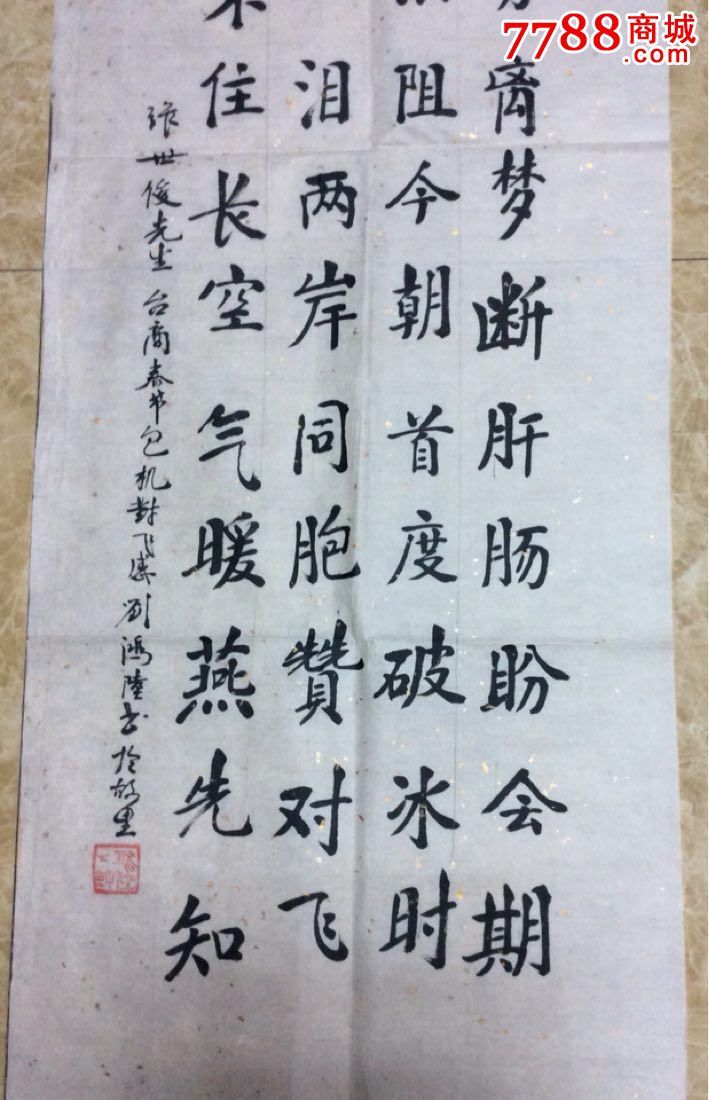 7788商城
.com
离梦断肝肠盼会期
阻今朝首度破冰时
泪两岸同胞赞对飞
住长空气暖燕先知
世俊先生台商春节包机对飞 刘鸿陆书於故里